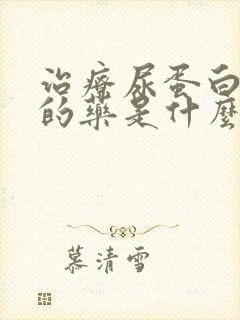 治療尿蛋白
的藥是什麼
慕清雪